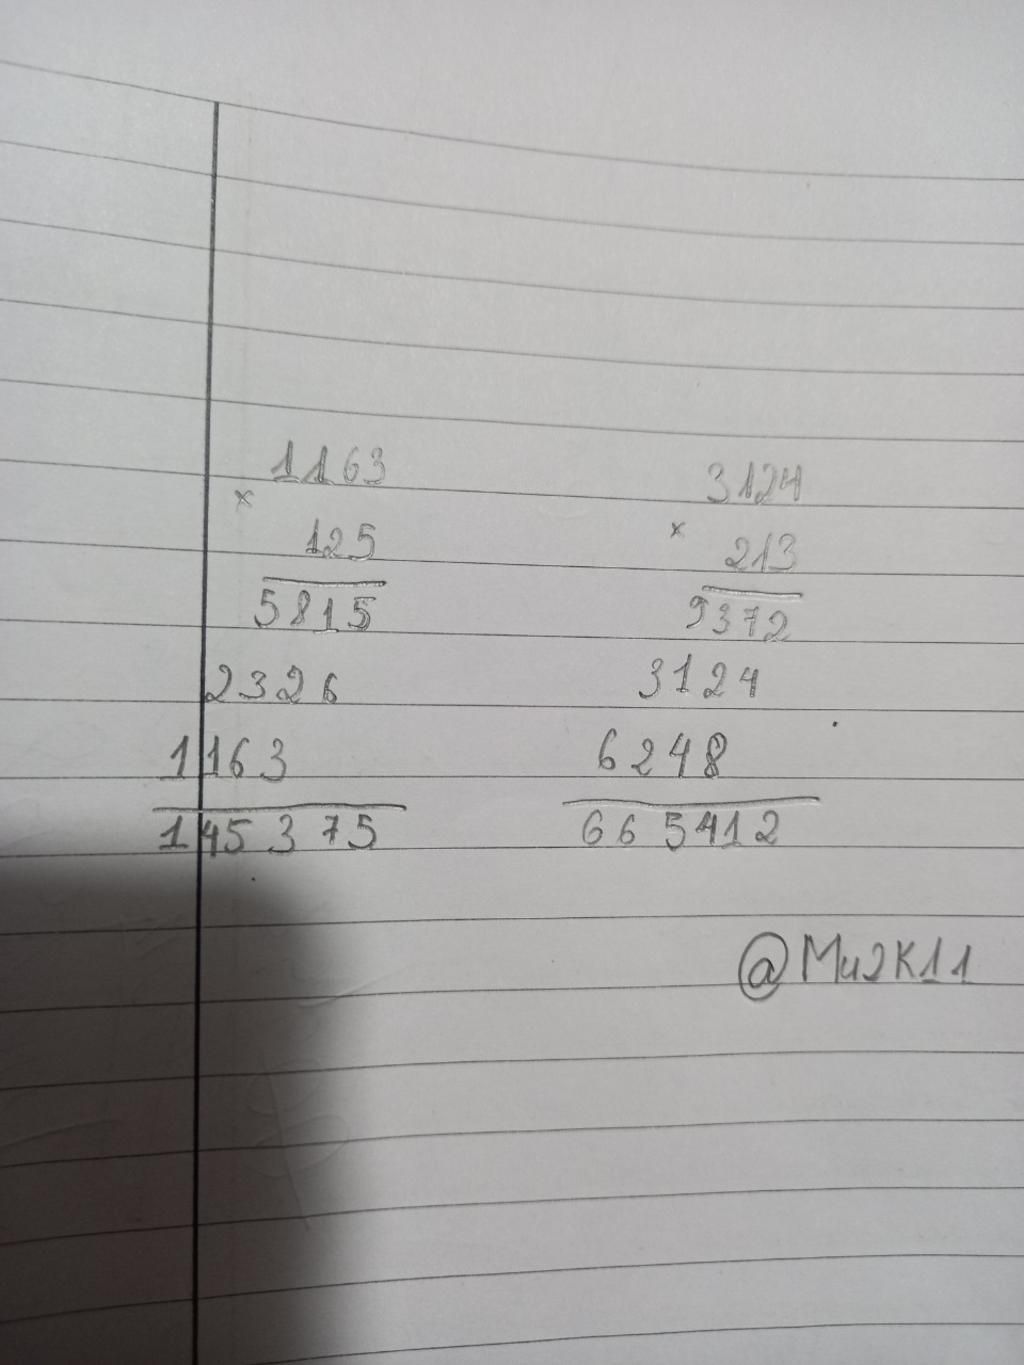 1163
×
125
5815
2326
1163
145375
3124
×
213
9372
3124
6248
665412
@Mu2K11